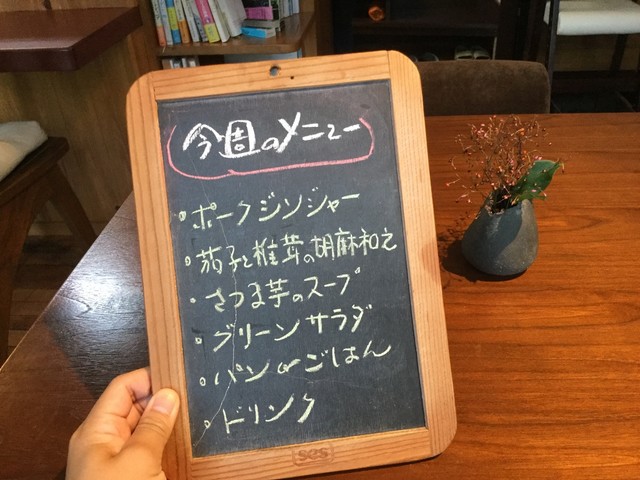 今週のメニュー
・ポークジンジャー
・茄子と椎茸の胡麻和え
・さつま芋のスープ
・グリーンサラダ
・パン or ごはん
・ドリンク
SGS